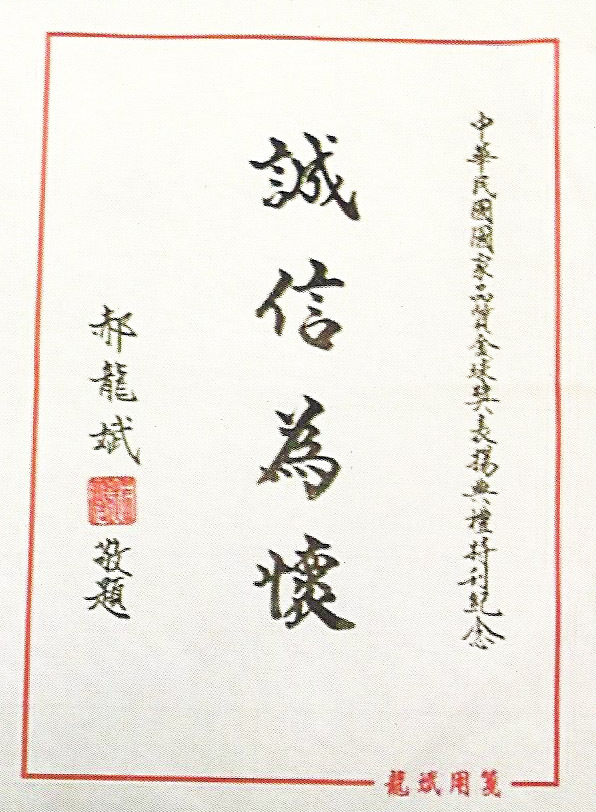 中華民國國家品質金琥獎表揚典禮特刊紀念
誠信為懷
郝龍斌
敬題
龍斌用箋